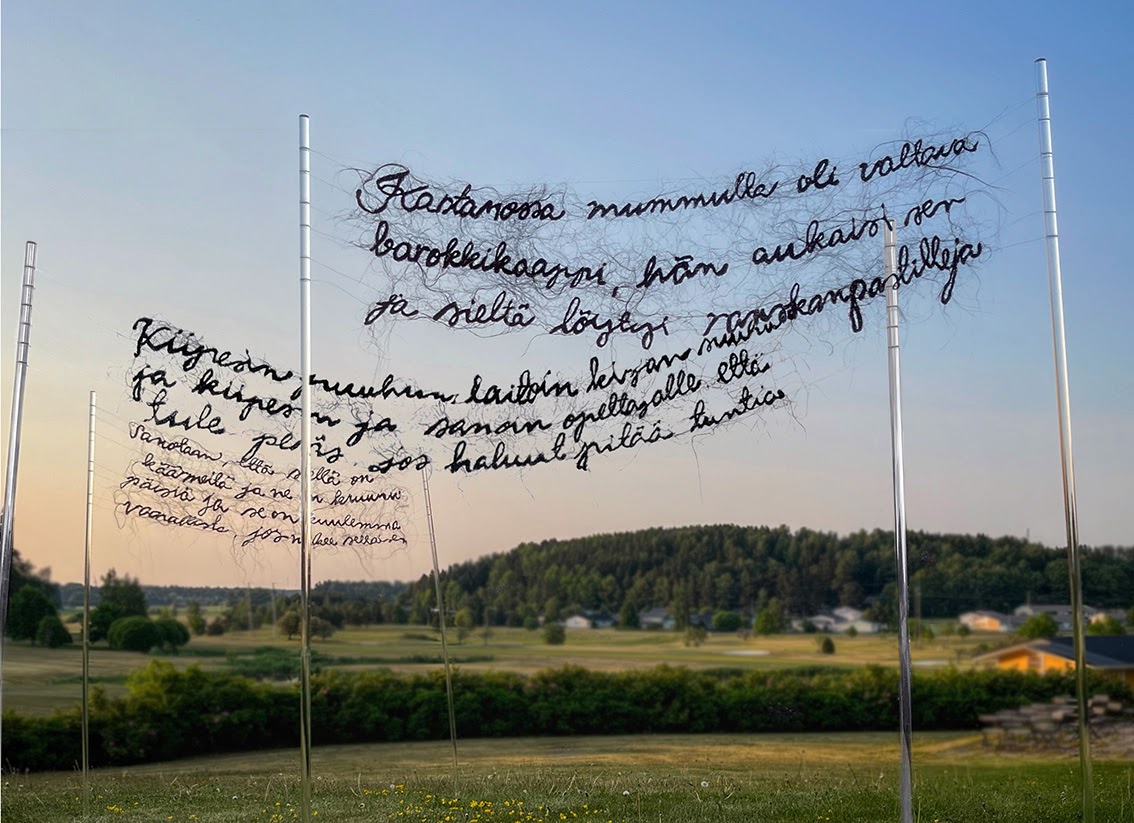 Kastanossa mummulla oli valtava
barokkikaappi, hän aukaisi sen
ja sieltä löytyi sanskanpastilleja
Kiipesin puuhun, laitoin kirjan suuhun
ja kiipesin ja sanoin opettajalle että
tule pois jos haluut pitää tuntia
Sanotaan, että siellä on
käärmeitä ja ne on kruunu
päisiä ja se on kuulemma
vaarallista, jos näkee sellaisen